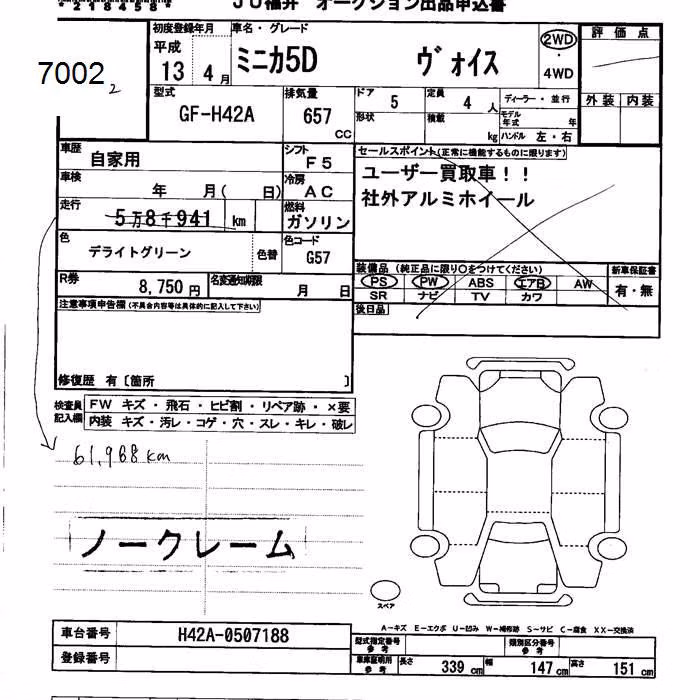 JU福井 オークション出品申込書
7002 2
初度登録年月 車名・グレード
平成 13 4月 ミニカ5D ヴォイス 2WD ・ 4WD
評価点
外装 内装
型式 GF-H42A 排気量 657 CC
ドア 5 定員 4 人 ディーラー・並行
形状 積載 kg モデル年式 年
ハンドル 左・右
車歴 自家用 シフト F5
車検 年 月( 日) 冷房 AC
走行 5万8千941 km 燃料 ガソリン
色 デライトグリーン 色替 色コード G57
R券 8,750円 名変通知期限 月 日
セールスポイント(正常に機能するものに限ります)
ユーザー買取車!!
社外アルミホイール
装備品(純正品に限り○をつけてください) 新車保証書
PS PW ABS エアB AW 有・無
SR ナビ TV カワ
後日品
注意事項申告欄(不具合内容等は具体的に記入して下さい)
修復歴 有〔箇所 〕
検査員記入欄 FW キズ・飛石・ヒビ割・リペア跡・×要
内装 キズ・汚レ・コゲ・穴・スレ・キレ・破レ
61,968km
ノークレーム
スペア
A-キズ E-エクボ U-凹み W-補修跡 S-サビ C-腐食 XX-交換済
車台番号 H42A-0507188
登録番号
型式指定番号 参考 類別区分番号 参考
車庫証明用 参考 長さ 339 cm 幅 147 cm 高さ 151 cm